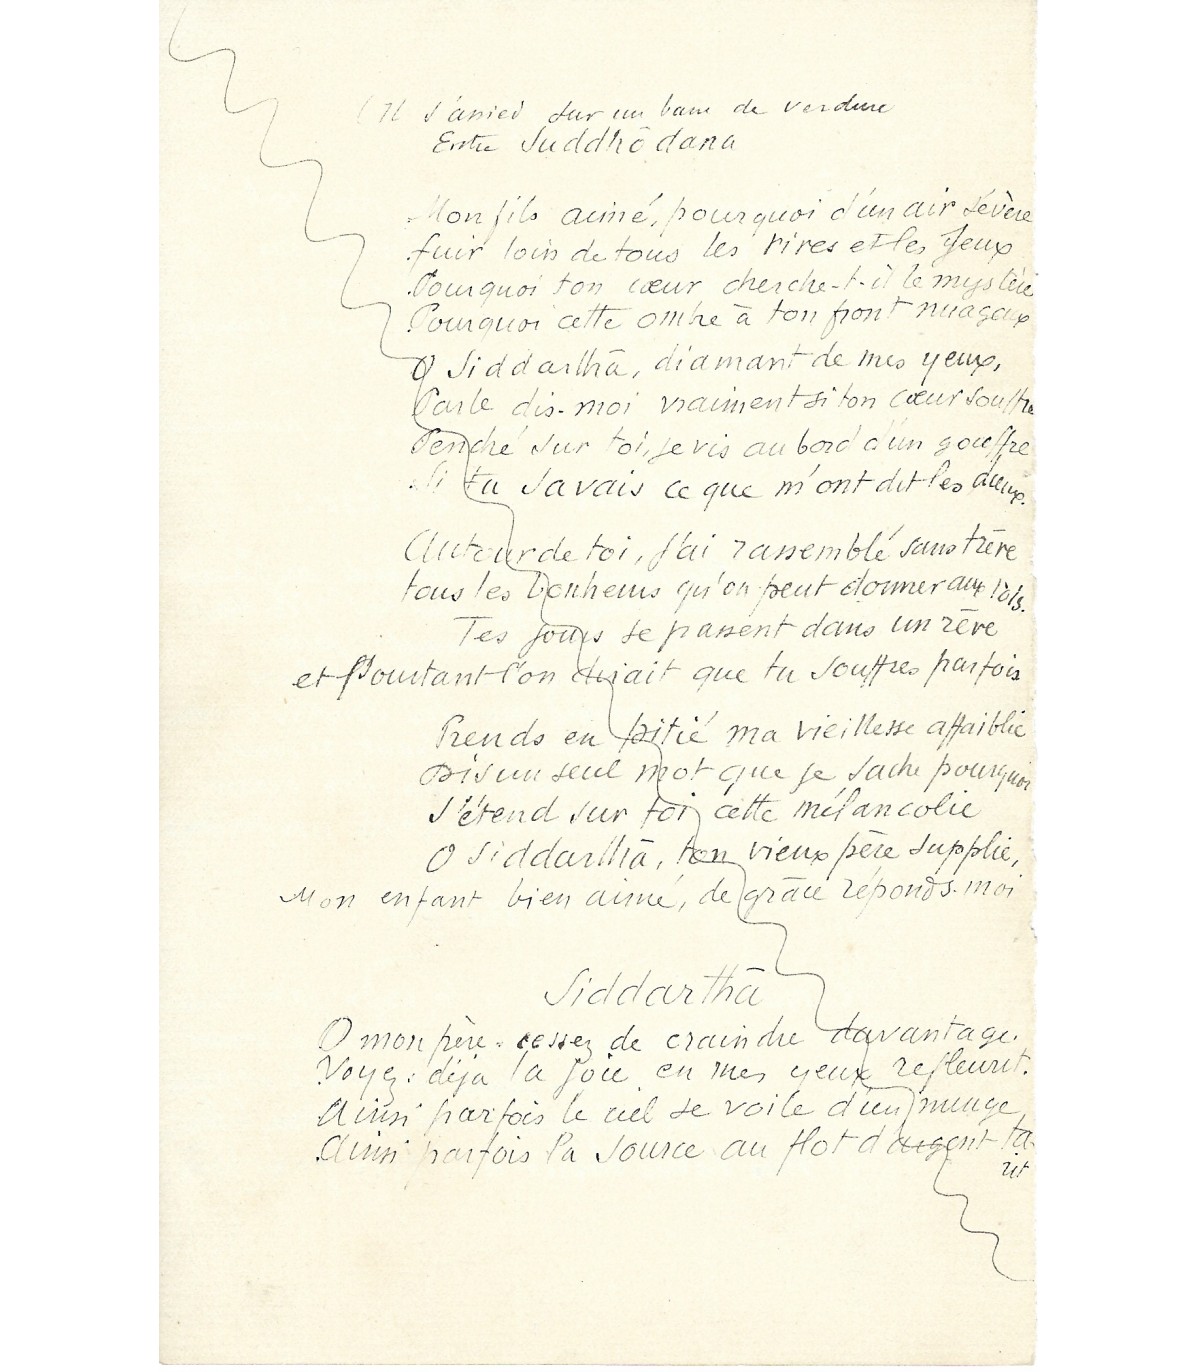 ( Il s'assied sur un banc de verdure
Entre Suddhōdana
Mon fils aimé, pourquoi d'un air sévère
fuir loin de tous les rires et les jeux
Pourquoi ton cœur cherche-t-il le mystère
Pourquoi cette ombre à ton front nuageux
O Siddarthā, diamant de mes yeux,
Parle dis-moi vraiment si ton cœur souffre
Penché sur toi, je vis au bord d'un gouffre
Si tu savais ce que m'ont dit les dieux.
Autour de toi, j'ai rassemblé sans trève
tous les bonheurs qu'on peut donner aux rois.
Tes jours se passent dans un rève
et Pourtant l'on dirait que tu souffres parfois
Prends en pitié ma vieillesse affaiblie
Dis un seul mot que je sache pourquoi
S'étend sur toi cette mélancolie
O Siddarthā, ton vieux père supplie,
Mon enfant bien aimé, de grâce réponds-moi
Siddarthā
O mon père - cessez de craindre davantage.
Voyez : déja la joie en mes yeux refleurit.
Ainsi parfois le ciel se voile d'un nuage,
Ainsi parfois la source au flot d'argent ta-
rit